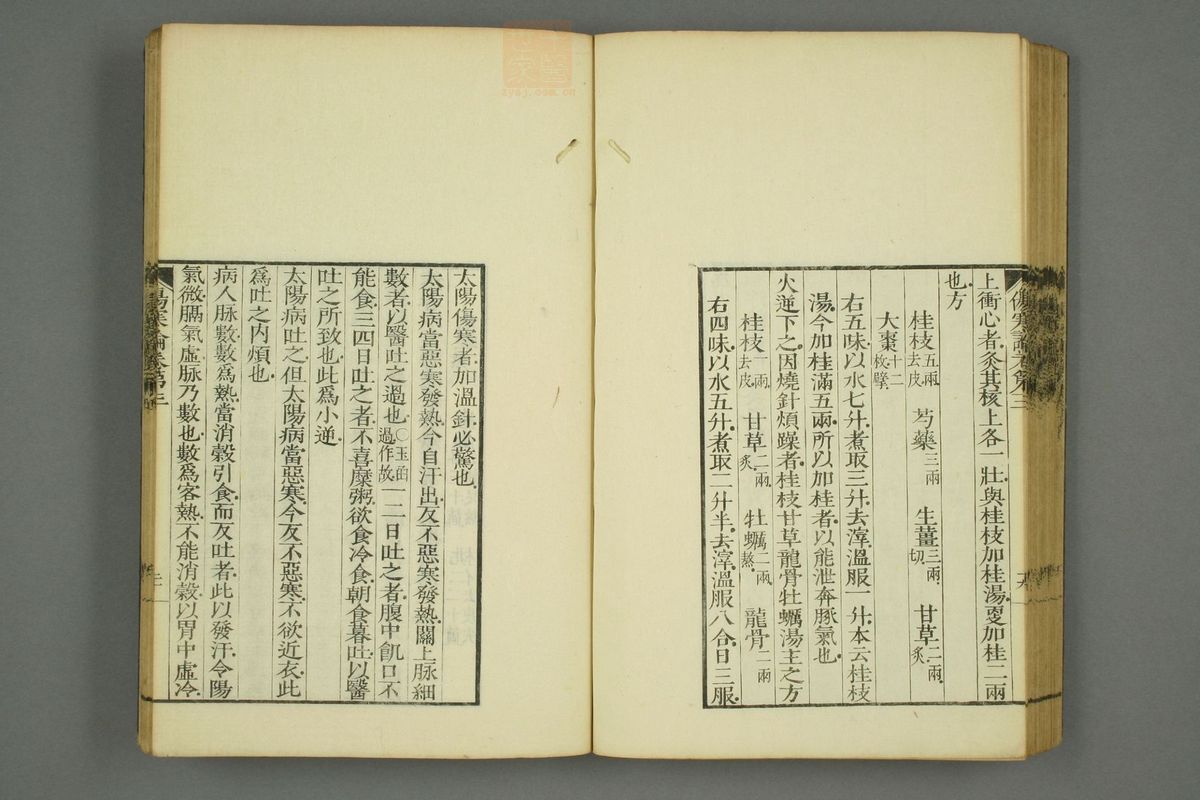 傷寒論卷第三
上衝心者灸其核上各一壯與桂枝加桂湯更加桂二兩
也方
桂枝五兩去皮 芍藥三兩 生薑三兩切 甘草二兩炙
大棗十二枚擘
右五味以水七升煮取三升去滓溫服一升本云桂枝
湯今加桂滿五兩所以加桂者以能泄奔豚氣也
火逆下之因燒針煩躁者桂枝甘草龍骨牡蠣湯主之方
桂枝一兩去皮 甘草二兩炙 牡蠣二兩熬 龍骨二兩
右四味以水五升煮取二升半去滓溫服八合日三服
太陽傷寒者加溫針必驚也
太陽病當惡寒發熱今自汗出反不惡寒發熱關上脉細
數者以醫吐之過也〇玉函過作故一二日吐之者腹中飢口不
能食三四日吐之者不喜糜粥欲食冷食朝食暮吐以醫
吐之所致也此爲小逆
太陽病吐之但太陽病當惡寒今反不惡寒不欲近衣此
爲吐之內煩也
病人脉數數爲熱當消穀引食而反吐者此以發汗令陽
氣微膈氣虛脉乃數也數爲客熱不能消穀以胃中虛冷
傷寒論卷第三
zysj.com.cn